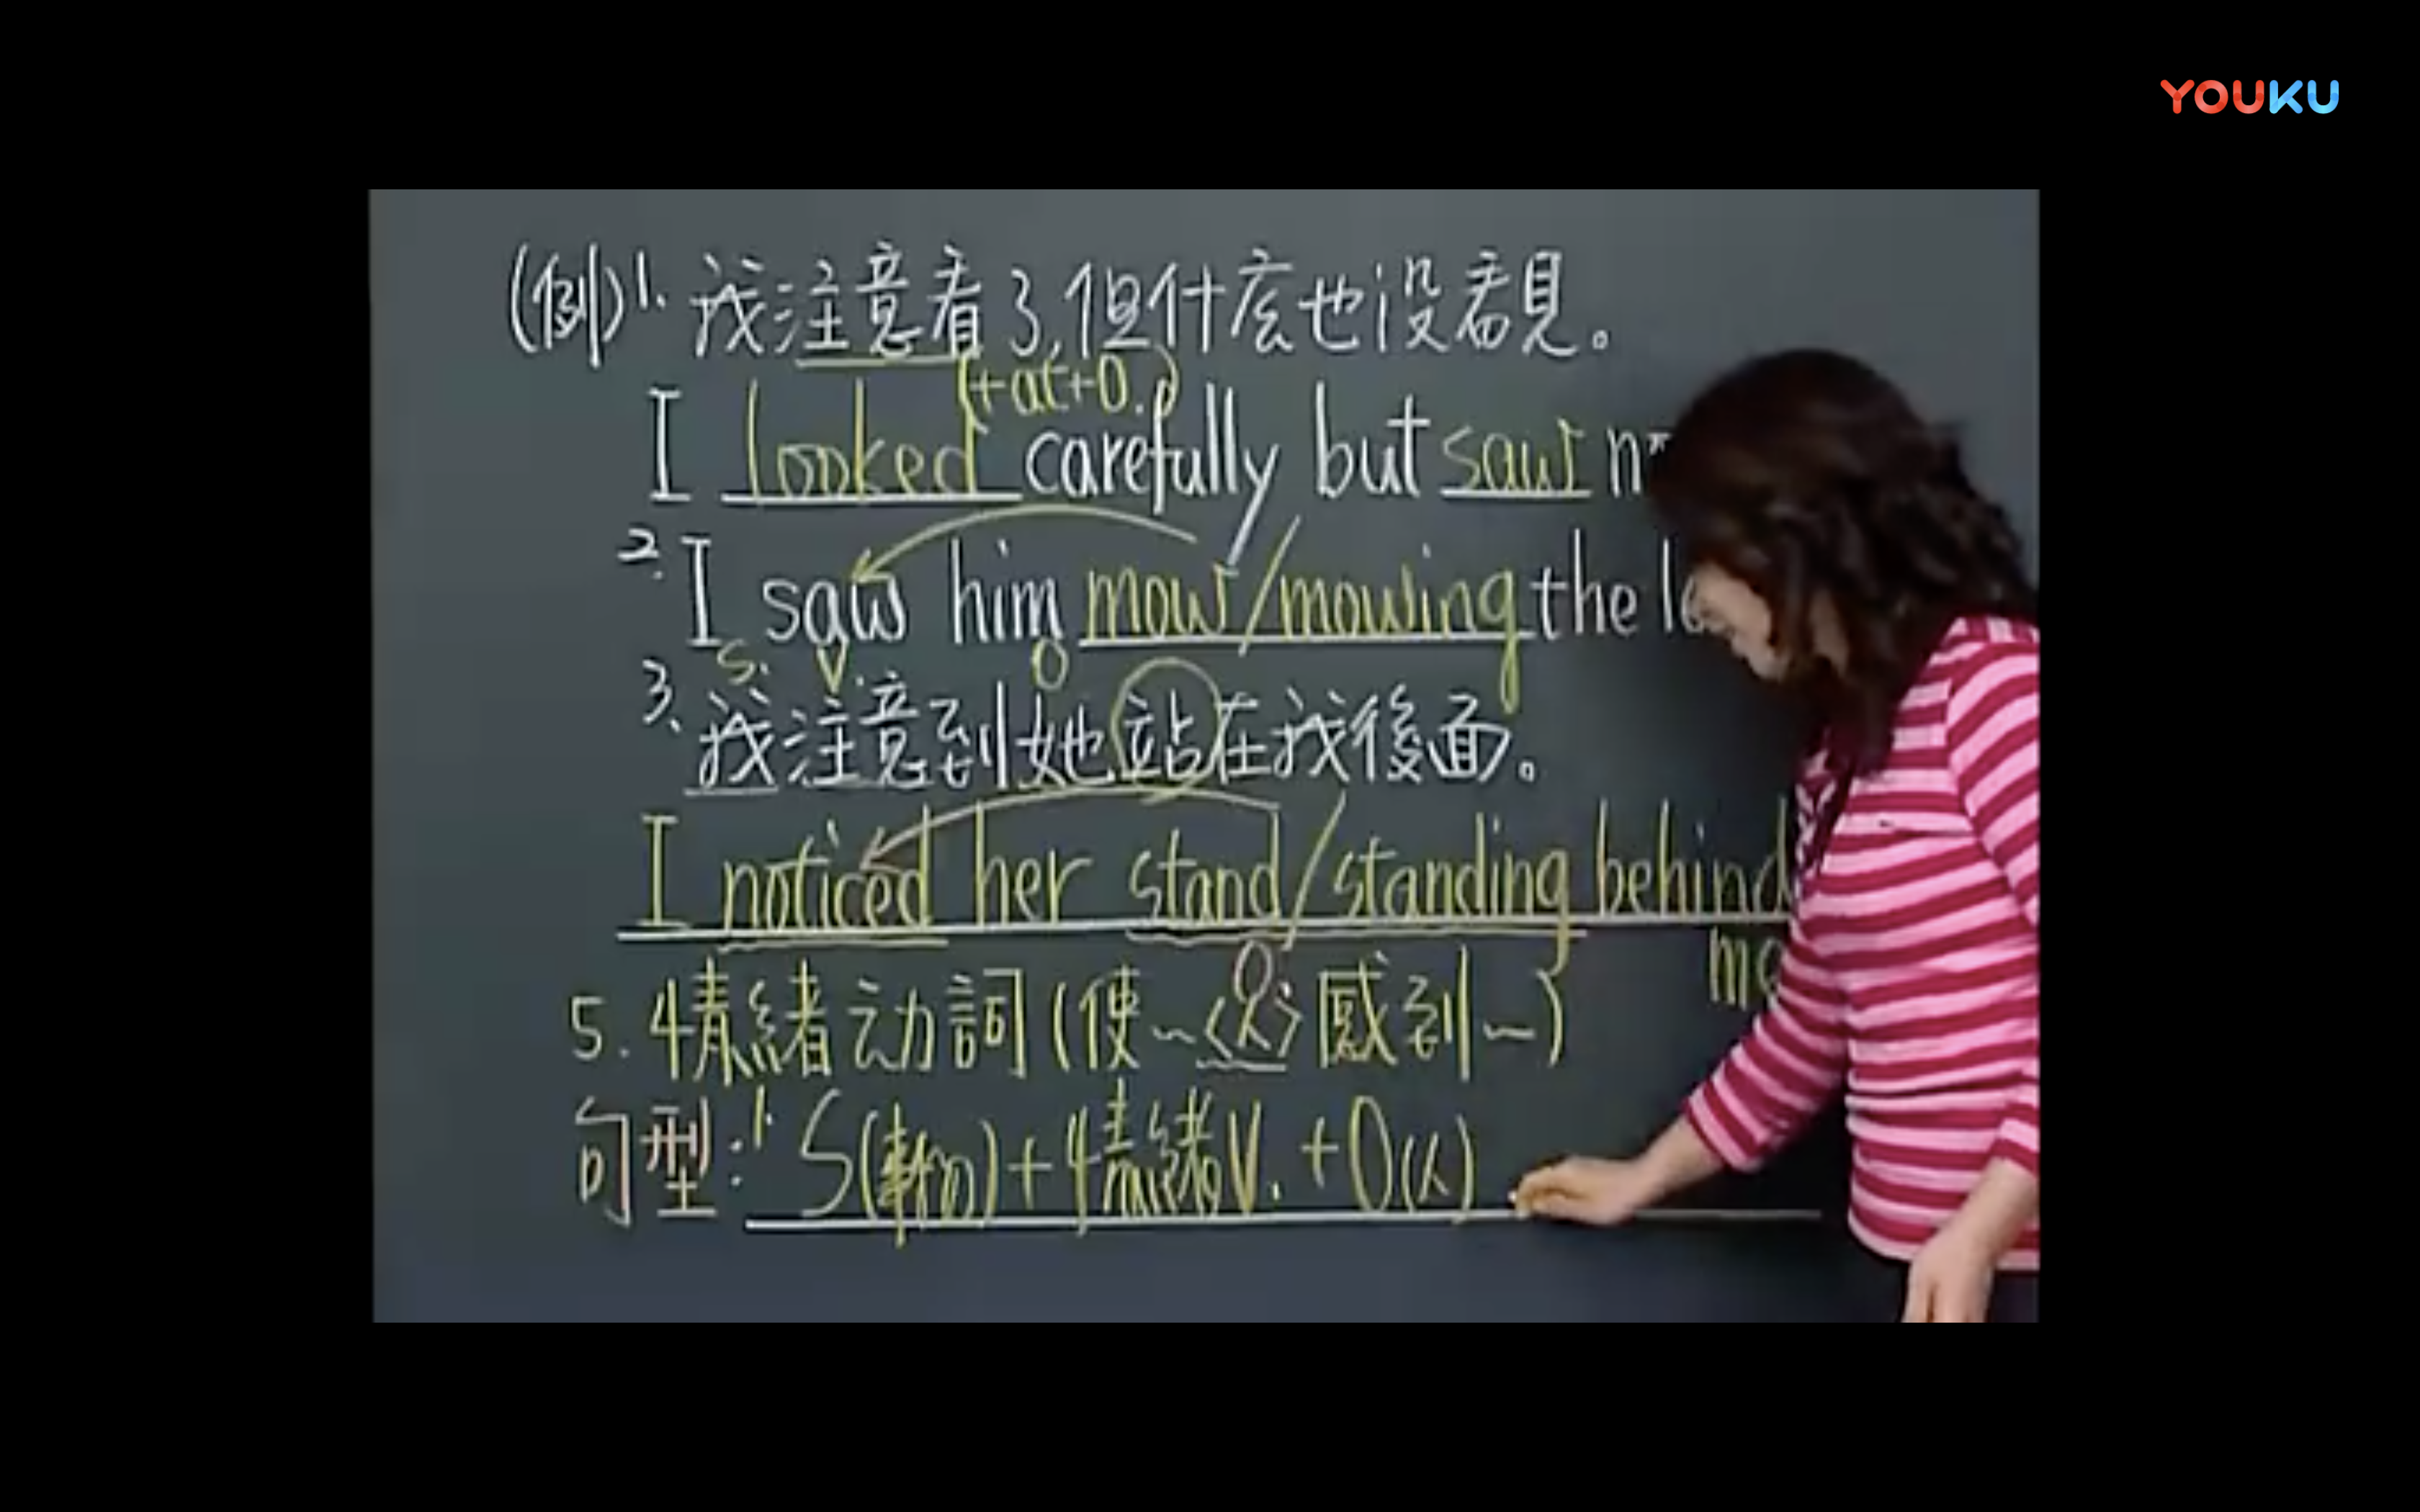 YOUKU
(例)1. 我注意看了,但什庅也沒看見。
(+at+O.)
I looked carefully but saw
2. I saw him mow/mowing the
S. V. O
3. 我注意到她站在我後面。
I noticed her stand/standing behind
O.
5. 情緒动詞(使~<人>感到~)
句型:1. S(事物)+情緒V.+O(人)